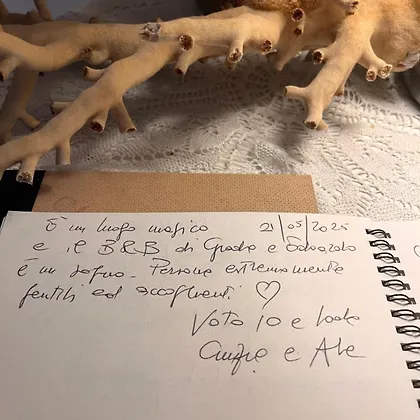 È un luogo magico 21/05/2025
e il B&B di Grazia e Edoardo
è un sogno. Persone estremamente
gentili ed accoglienti ♡
Voto 10 e lode
Cinzia e Ale